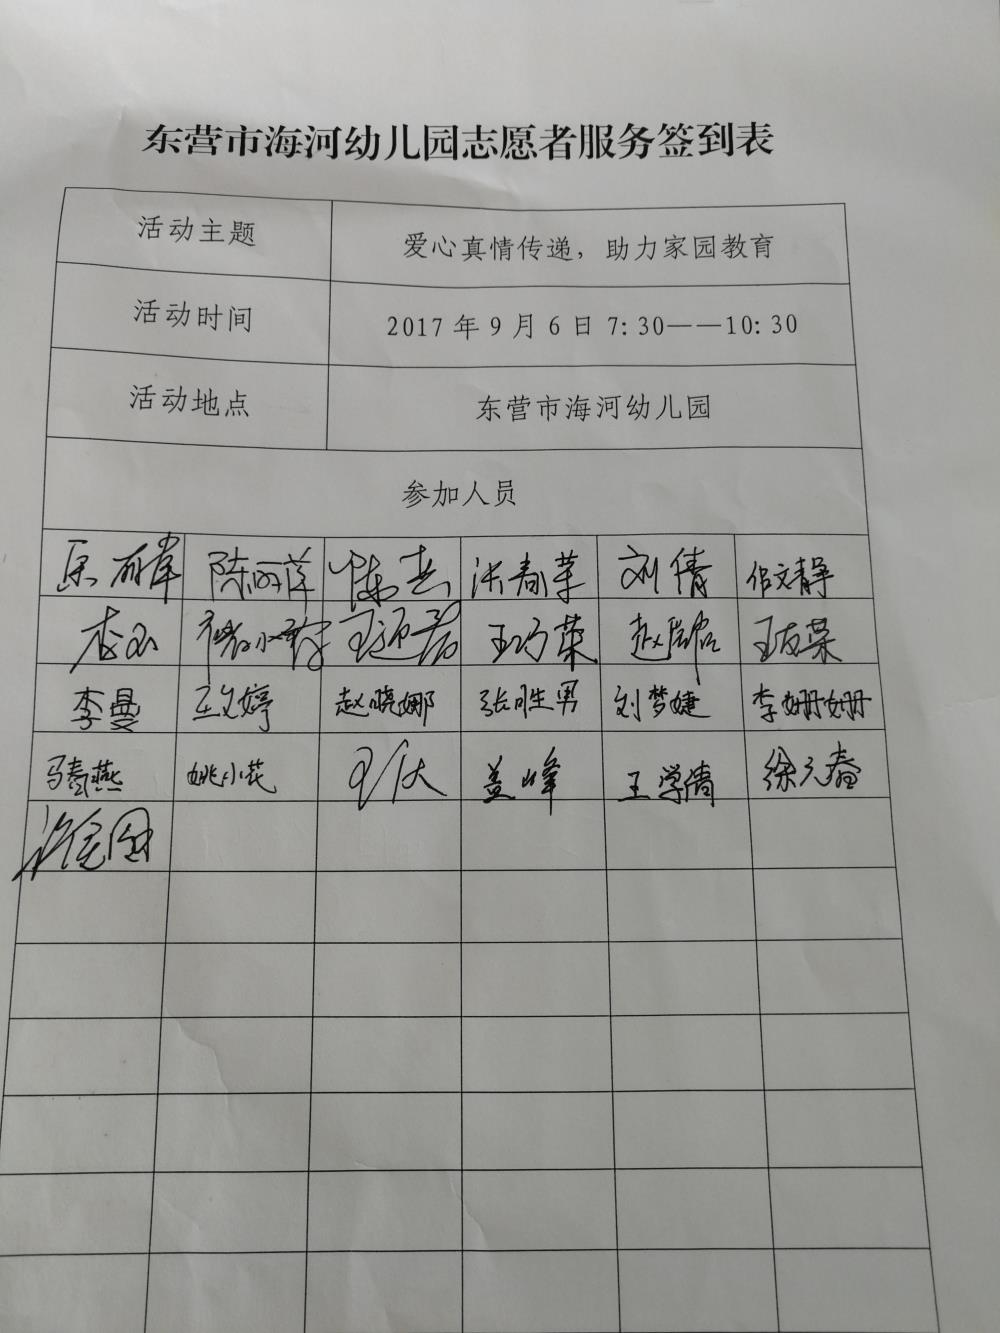 东营市海河幼儿园志愿者服务签到表
活动主题 爱心真情传递，助力家园教育
活动时间 2017年9月6日7:30——10:30
活动地点 东营市海河幼儿园
参加人员
陈丽萍 刘倩
王巧荣 王友荣
李曼 王文婷 赵晓娜 张胜男 刘梦婕 李姗姗
马春燕 姚小花 盖峰 王学倩 徐元春